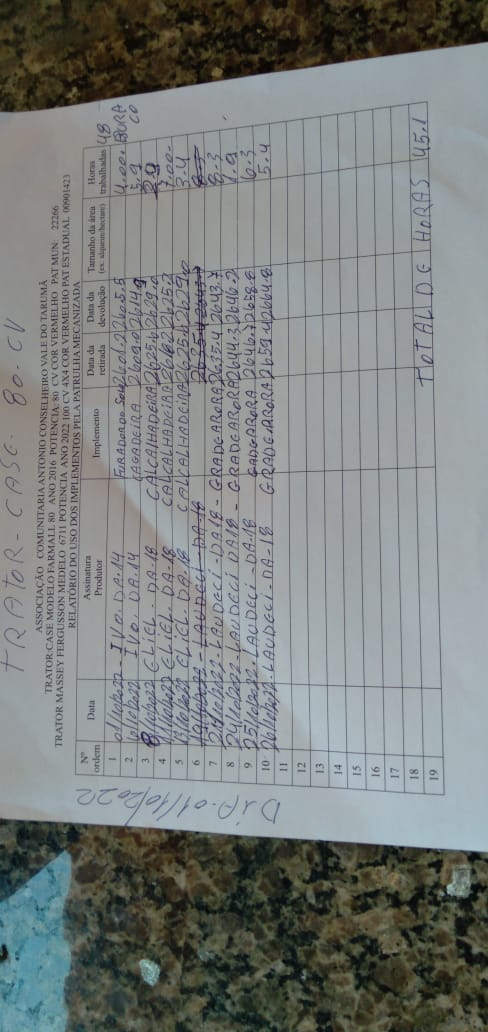 TRATOR-CASE. 80.CV
ASSOCIAÇÃO COMUNITARIA ANTONIO CONSELHEIRO VALE DO TARUMÃ
TRATOR CASE MODELO FARMALL 80 ANO 2016 POTENCIA: 80 CV COR VERMELHO PAT MUN: 22266
TRATOR MASSEY FERGUSSON MEDELO 6711 POTENCIA ANO 2022 100 CV 4X4 COR VERMELHO PAT ESTADUAL 00901423
RELATÓRIO DO USO DOS IMPLEMENTOS PELA PATRULHA MECANIZADA
DiA-01/10/2022
Nº ordem Data Assinatura Produtor Implemento Data da retirada Data da devolução Tamanho da área (ex: alqueire/hectare) Horas trabalhadas
48 BURACO
1 01/10/2022 - IVO. DA.14 FURADOR DO SOLO 2601.2 2605.5 4.00.
2 IVO. DA.14 2609.0 2614.9 5.9
3 8/10/2022 ELIEL. DA.18 CALCALHADEIRA
4 11/10/2022 ELIEL. DA.18 CALCALHADEIRA 7.00.
5 13/10/2022 ELIEL. DA.18 CALCALHADEIRA 3.4
6 LAUDECI - DA-18
7 LAUDECI - DA18 - GRADEARORA 2635.4 2643.7 8.3
8 24/10/2022 - LAUDECI DA18 - GRADEARORA 2644.3 2646.2 1.9
9 25/10/2022 - LAUDECI - DA-18 GADEARORA 2646.7 6.3
10 26/10/2022 - LAUDECI - DA-18 GRADEARORA 2659.4 2664.8 5.4
11
12
13
14
15
16
17
18 TOTAL DE HORAS 45.1
19